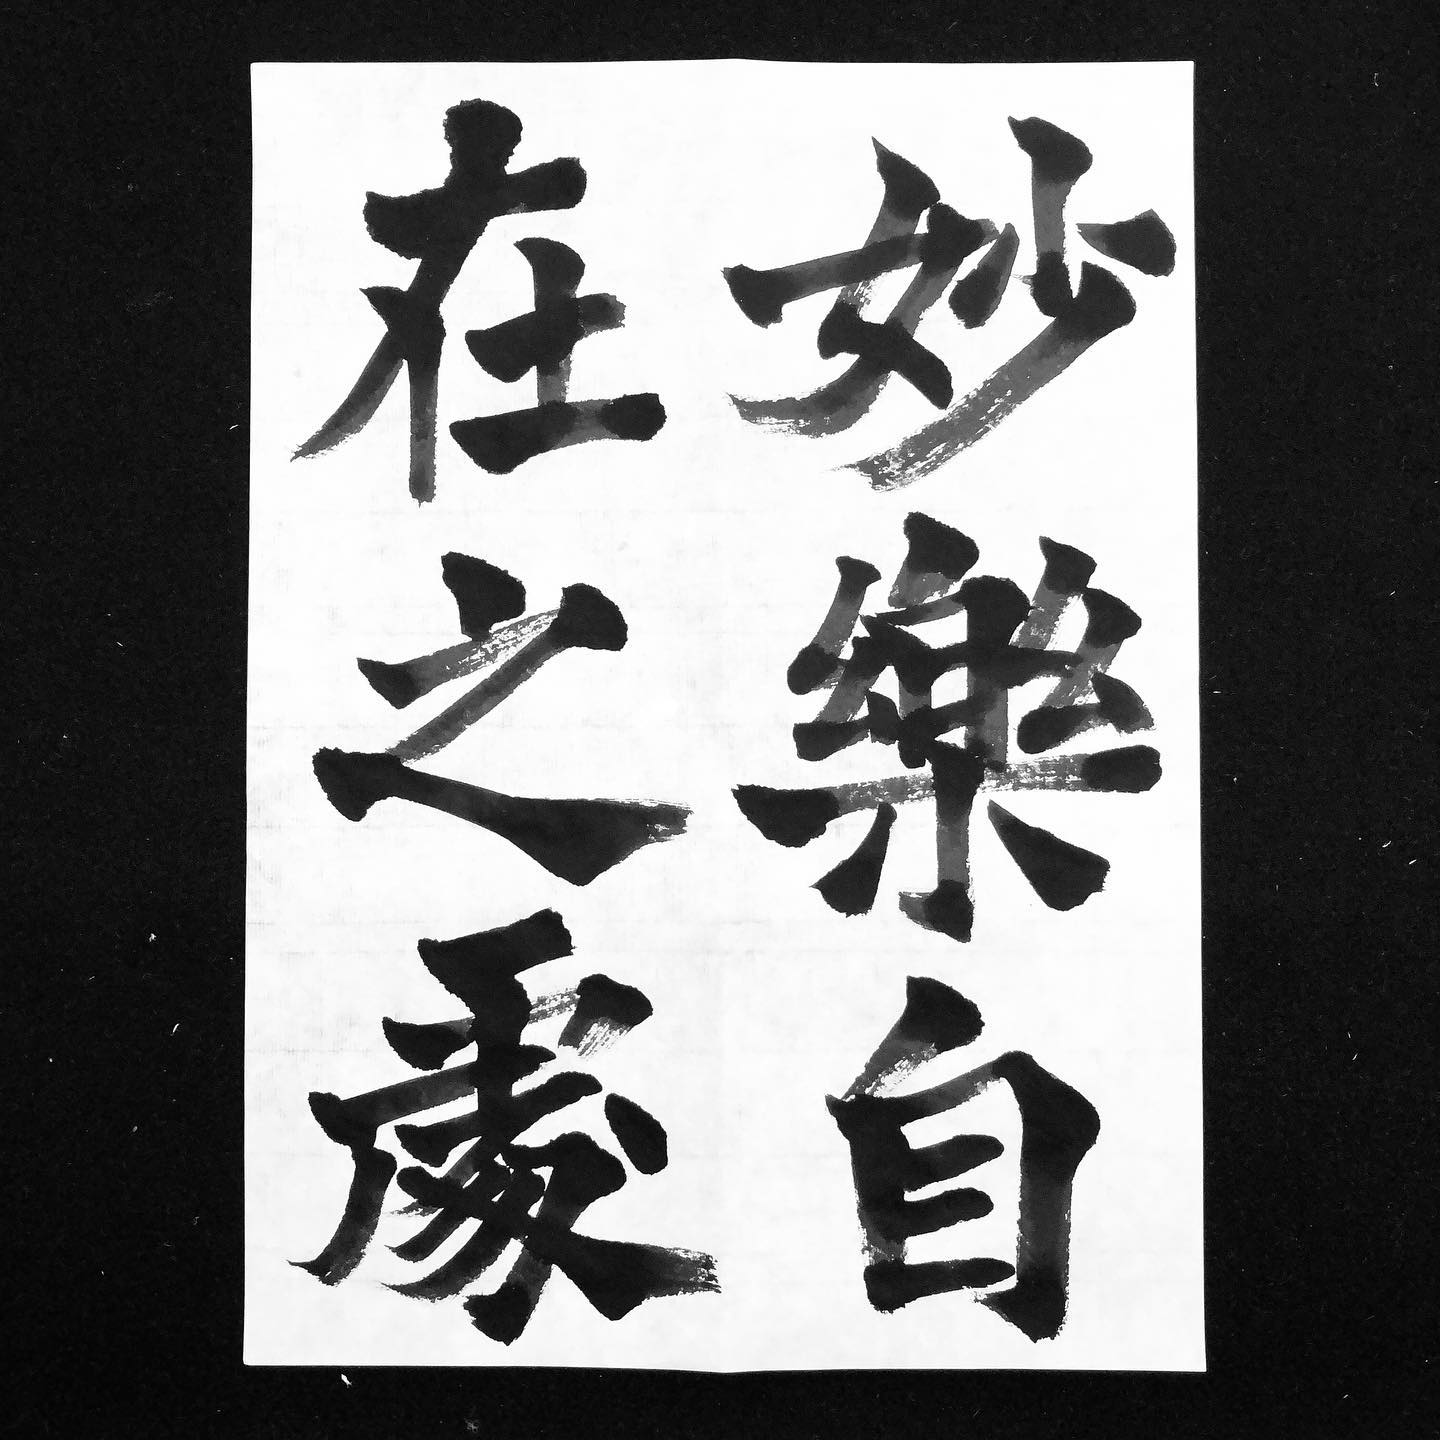 妙樂自
在之處